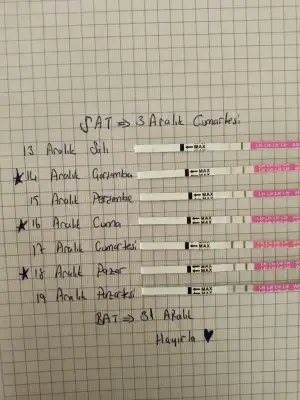 SAT ⇒ 3 Aralık Cumartesi
13 Aralık Salı
★14 Aralık Çarşamba
15 Aralık Perşembe
★16 Aralık Cuma
17 Aralık Cumartesi
★18 Aralık Pazar
19 Aralık Pazartesi
BAT ⇒ 31 Aralık
Hayırla ♥
MAX
MAX
MAX
MAX
MAX
MAX
MAX
MAX
MAX
MAX
MAX
MAX
MAX